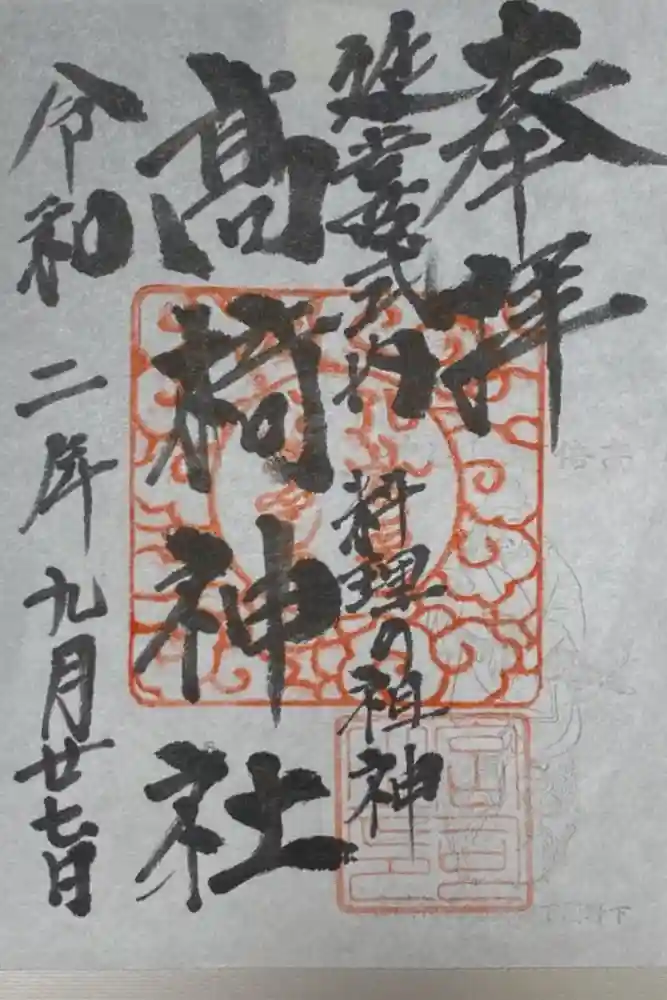 奉拝
延喜式内
料理の祖神
高椅神社
令和二年九月廿七日